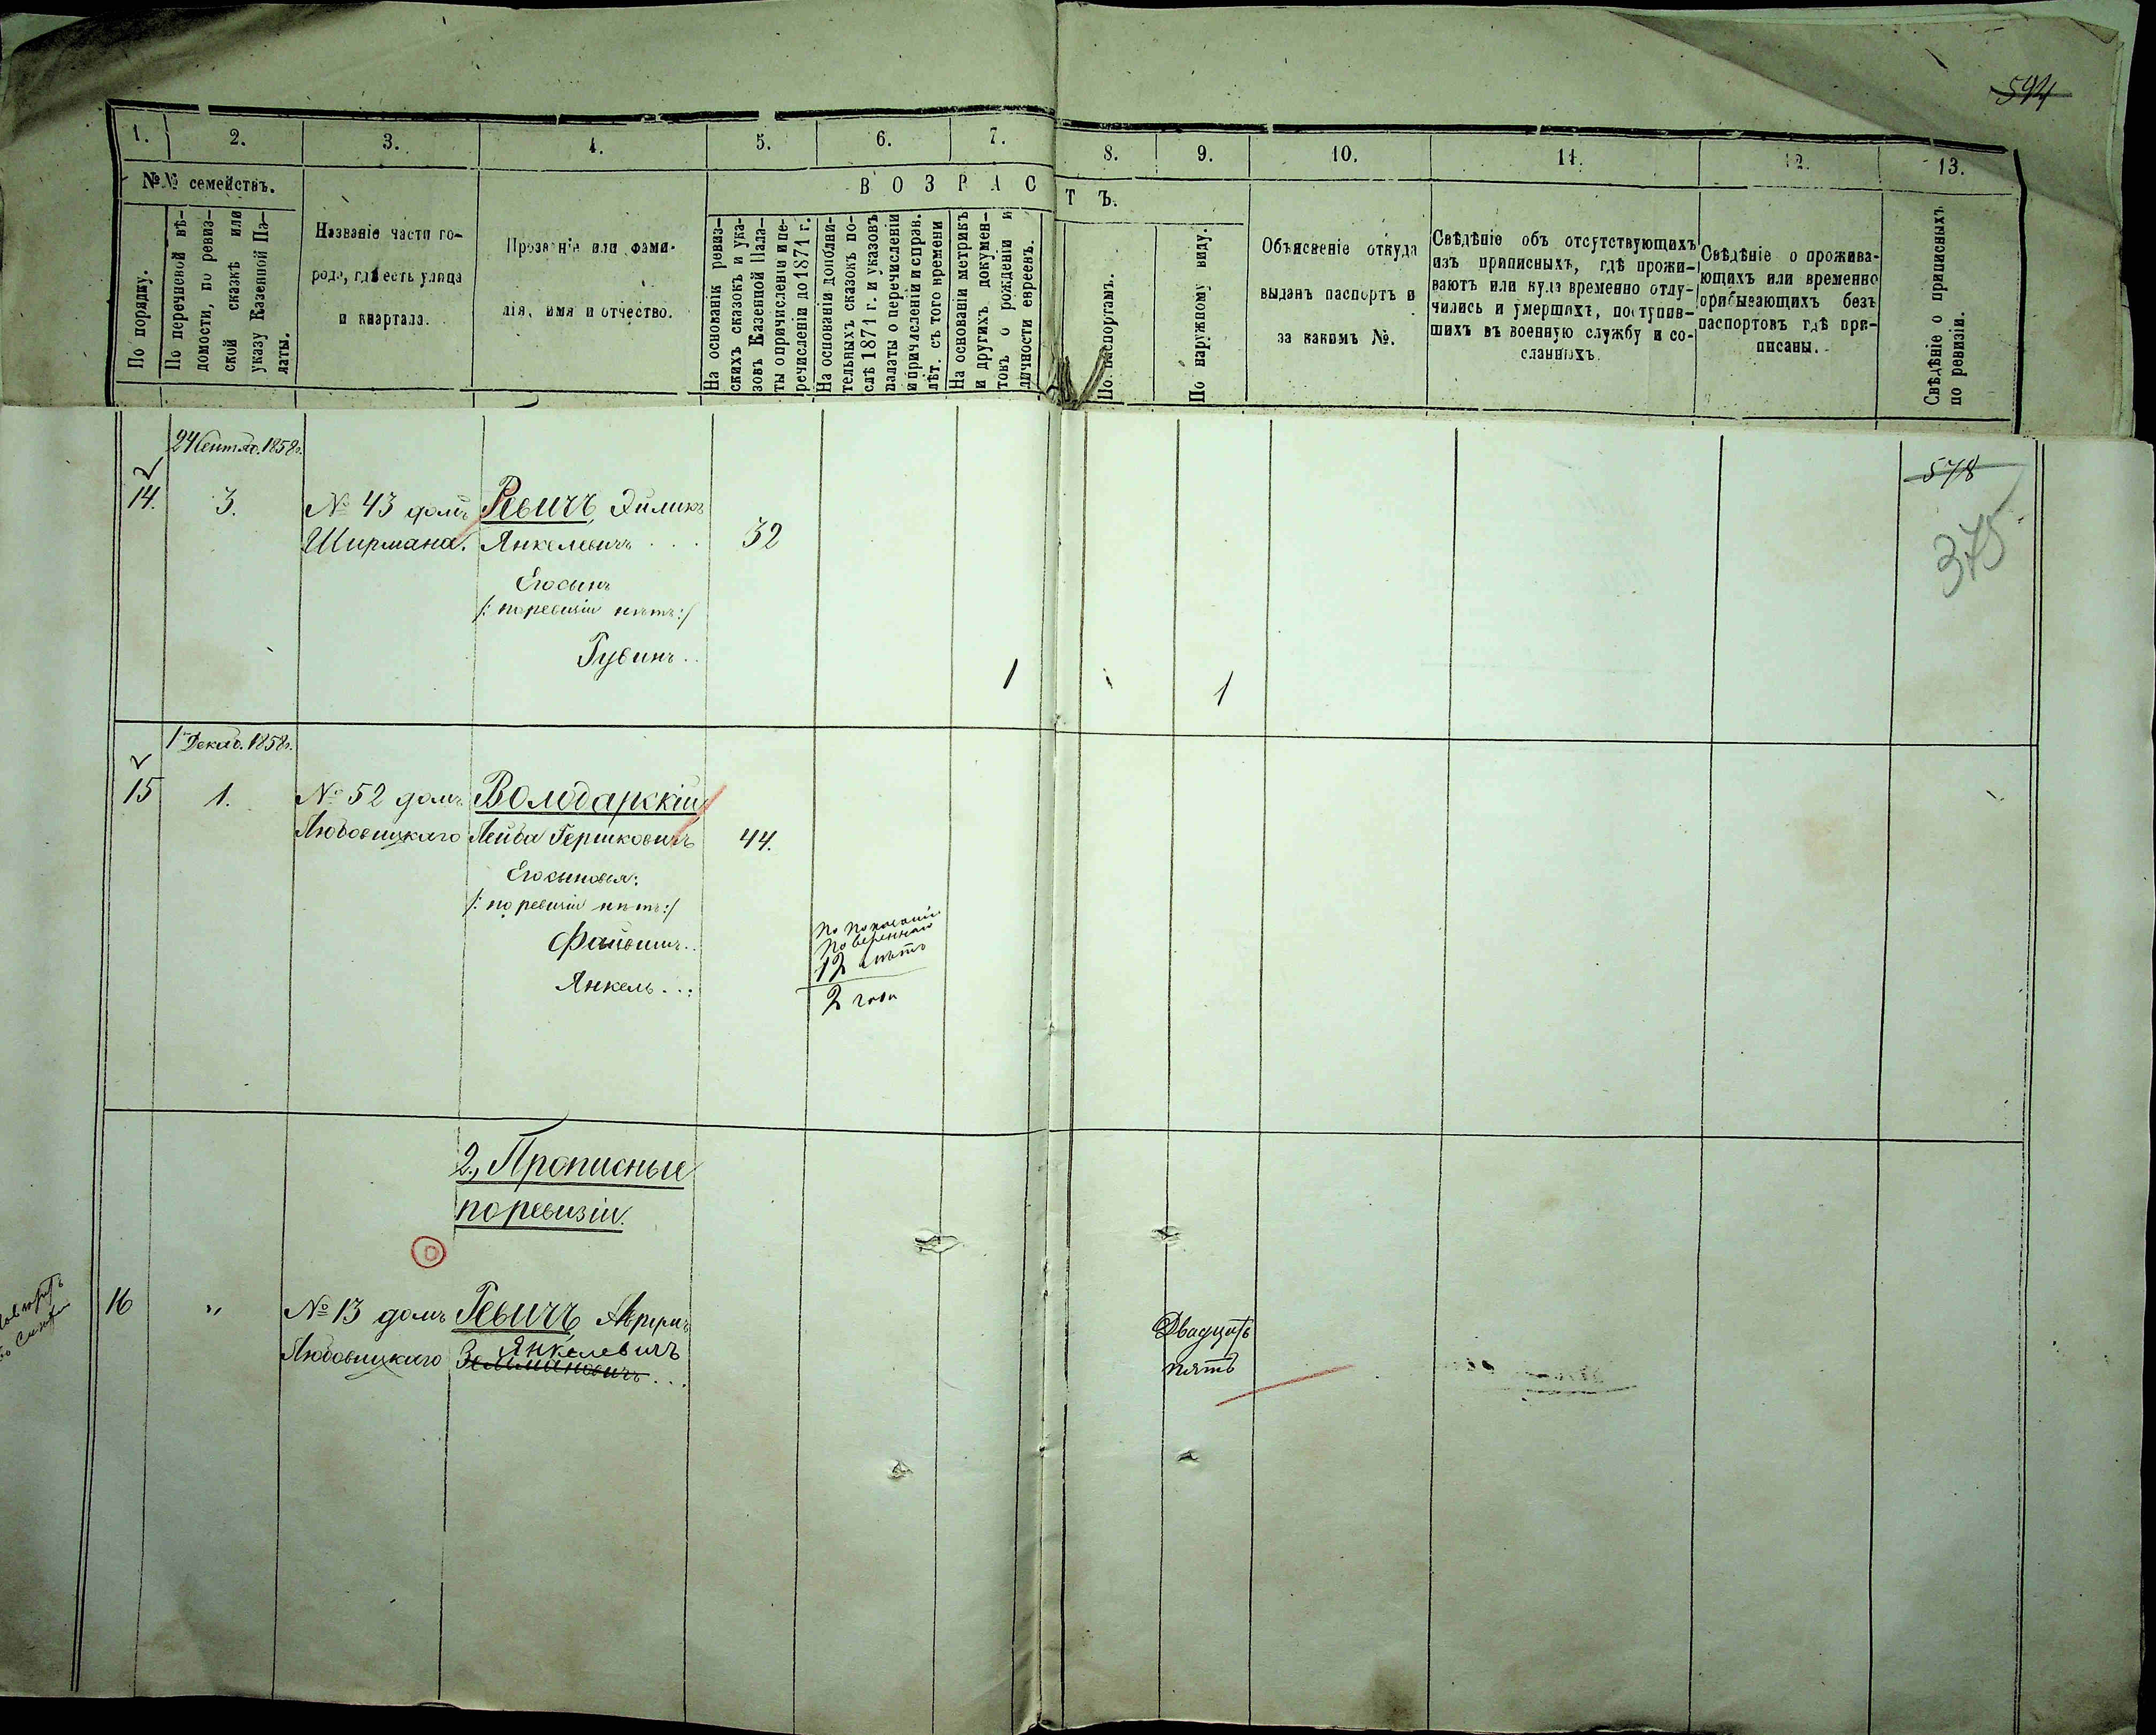 594
1. 2. 3. 4. 5. 6. 7. 8. 9. 10. 11. 12. 13.
№№ семействъ.
По порядку.
По перечневой вѣ-
домости, по ревиз-
ской сказкѣ или
указу Казенной Па-
латы.
Названіе части го-
рода, гдѣ есть улица
и квартала.
Прозваніе или фами-
лія, имя и отчество.
ВОЗРАСТЪ.
На основаніи ревиз-
скихъ сказокъ и ука-
зовъ Казенной Пала-
ты о причисленіи и пе-
речисленіи до 1871 г.
На основаніи дополни-
тельныхъ сказокъ по-
слѣ 1871 г. и указовъ
палаты о перечисленіи
и причисленіи и справ.
лѣт. съ того времени
На основаніи метрикъ
и другихъ докумен-
товъ о рожденіи и
личности евреевъ.
По паспортамъ.
По наружному виду.
Объясненіе откуда
выданъ паспортъ и
за какимъ №.
Свѣдѣніе объ отсутствующихъ
изъ приписныхъ, гдѣ прожи-
ваютъ или куда временно отлу-
чились и умершихъ, поступив-
шихъ въ военную службу и со-
сланныхъ.
Свѣдѣніе о прожива-
ющихъ или временно
прибывающихъ безъ
паспортовъ гдѣ при-
писаны.
Свѣдѣніе о приписныхъ
по ревизіи.
24 Сентяб. 1858г.
578
375
14. 3. № 43 домъ Ревичъ, Эйлихъ
Ширмана. Янкелевичъ . . . 32
Его сынъ
/: по ревизіи нѣтъ :/
Рувинъ . . 1 1
1 Декаб. 1858г.
15 1. № 52 домъ Володарскій,
Любовицкаго Лейба Гершковичъ 44.
Его сыновья:
/: по ревизіи нѣтъ :/
Файвишъ . . по показанію
повереннаго
12 лѣтъ
Янкель . . . 2 года
2., Прописные
по ревизіи.
16 " № 13 домъ Ревичъ,
Любовицкаго Янкелевичъ
Зельмановичъ . . .
Двадцать
пять